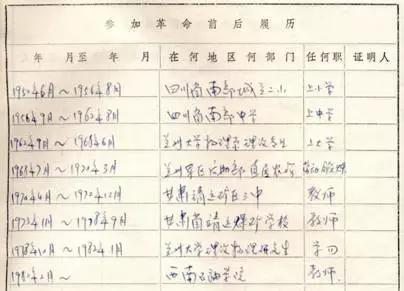 参加革命前后履历
年 月至 年 月 在何地区何部门 任何职 证明人
1950年6月～1956年8月 四川省南部城关二小 上小学
1956年9月～1962年8月 四川省南部中学 上中学
1962年9月～1968年6月 兰州大学物理系 上大学
1968年7月～1970年3月 兰州军区 农场 劳动锻炼
1970年4月～1972年12月 甘肃靖远矿区三中 教师
1973年1月～1978年9月 甘肃省靖远煤矿学校 教师
1978年10月～1982年1月 兰州大学 物理研究生 学习
1982年2月～ 西南石油学院 教师